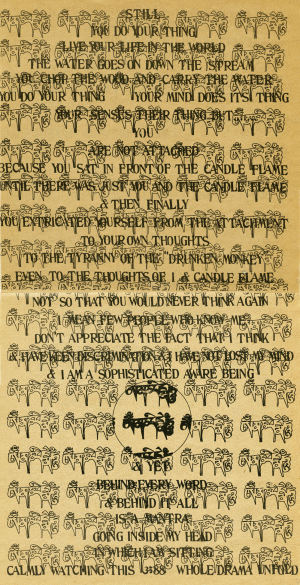 STILL
YOU DO YOUR THING
LIVE YOUR LIFE IN THE WORLD
THE WATER GOES ON DOWN THE STREAM
YOU CHOP THE WOOD AND CARRY THE WATER
YOU DO YOUR THING YOUR MIND DOES ITS THING
YOUR SENSES THEIR THING BUT
YOU
ARE NOT ATTACHED
BECAUSE YOU SAT IN FRONT OF THE CANDLE FLAME
UNTIL THERE WAS JUST YOU AND THE CANDLE FLAME
& THEN FINALLY
YOU EXTRICATED YOURSELF FROM THE ATTACHMENT
TO YOUR OWN THOUGHTS
TO THE TYRANNY OF THE DRUNKEN MONKEY
EVEN TO THE THOUGHTS OF I & CANDLE FLAME
NOT SO THAT YOU WOULD NEVER THINK AGAIN
I MEAN FEW PEOPLE WHO KNOW ME
DON'T APPRECIATE THE FACT THAT I THINK
& HAVE KEEN DISCRIMINATION & I HAVE NOT LOST MY MIND
& I AM A SOPHISTICATED AWARE BEING
& YET
BEHIND EVERY WORD
& BEHIND IT ALL
IS A MANTRA
GOING INSIDE MY HEAD
IN WHICH I AM SITTING
CALMLY WATCHING THIS WHOLE DRAMA UNFOLD